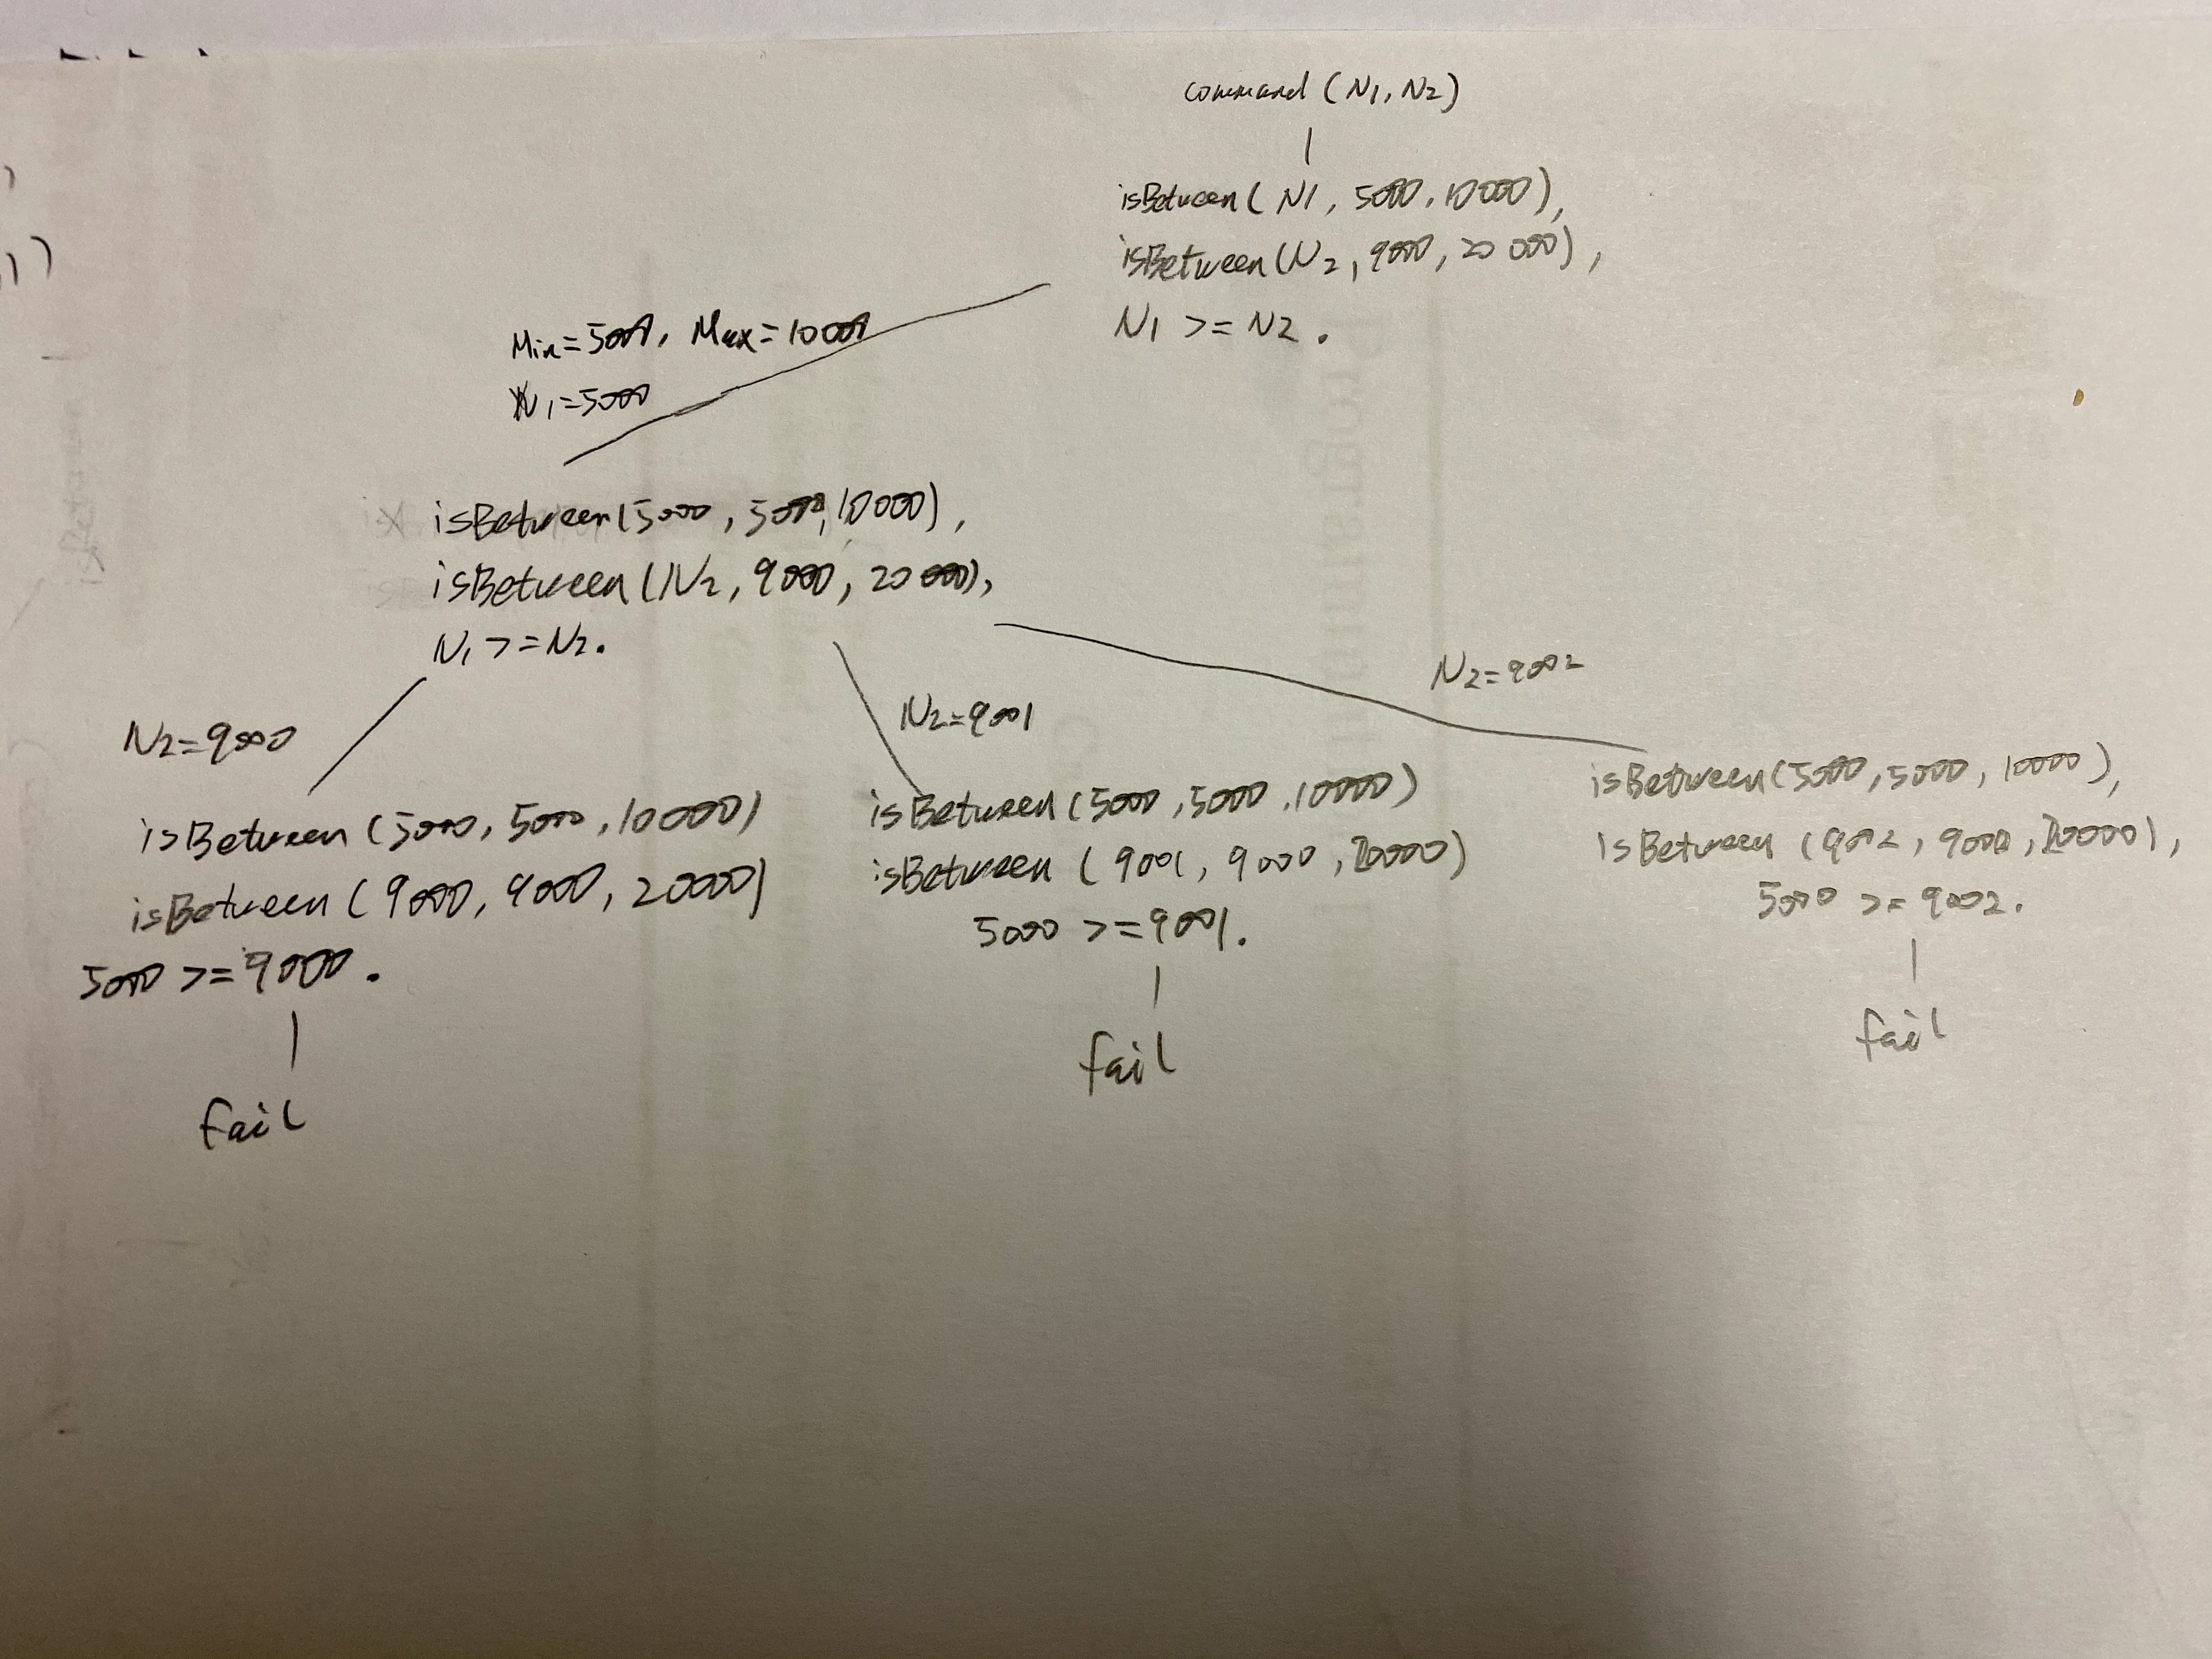 command (N1, N2)
isBetween( N1, 5000, 10000),
isBetween(N2, 9000, 20000),
N1 >= N2.
Min=5000, Max=10000
N1=5000
isBetween(5000, 5000, 10000),
isBetween(N2, 9000, 20000),
N1 >= N2.
N2=9000
N2=9001
N2=9002
isBetween (5000, 5000, 10000)
isBetween (9000, 9000, 20000)
5000 >= 9000.
fail
isBetween (5000, 5000, 10000)
isBetween (9001, 9000, 20000)
5000 >= 9001.
fail
isBetween(5000, 5000, 10000),
isBetween (9002, 9000, 20000),
5000 >= 9002.
fail